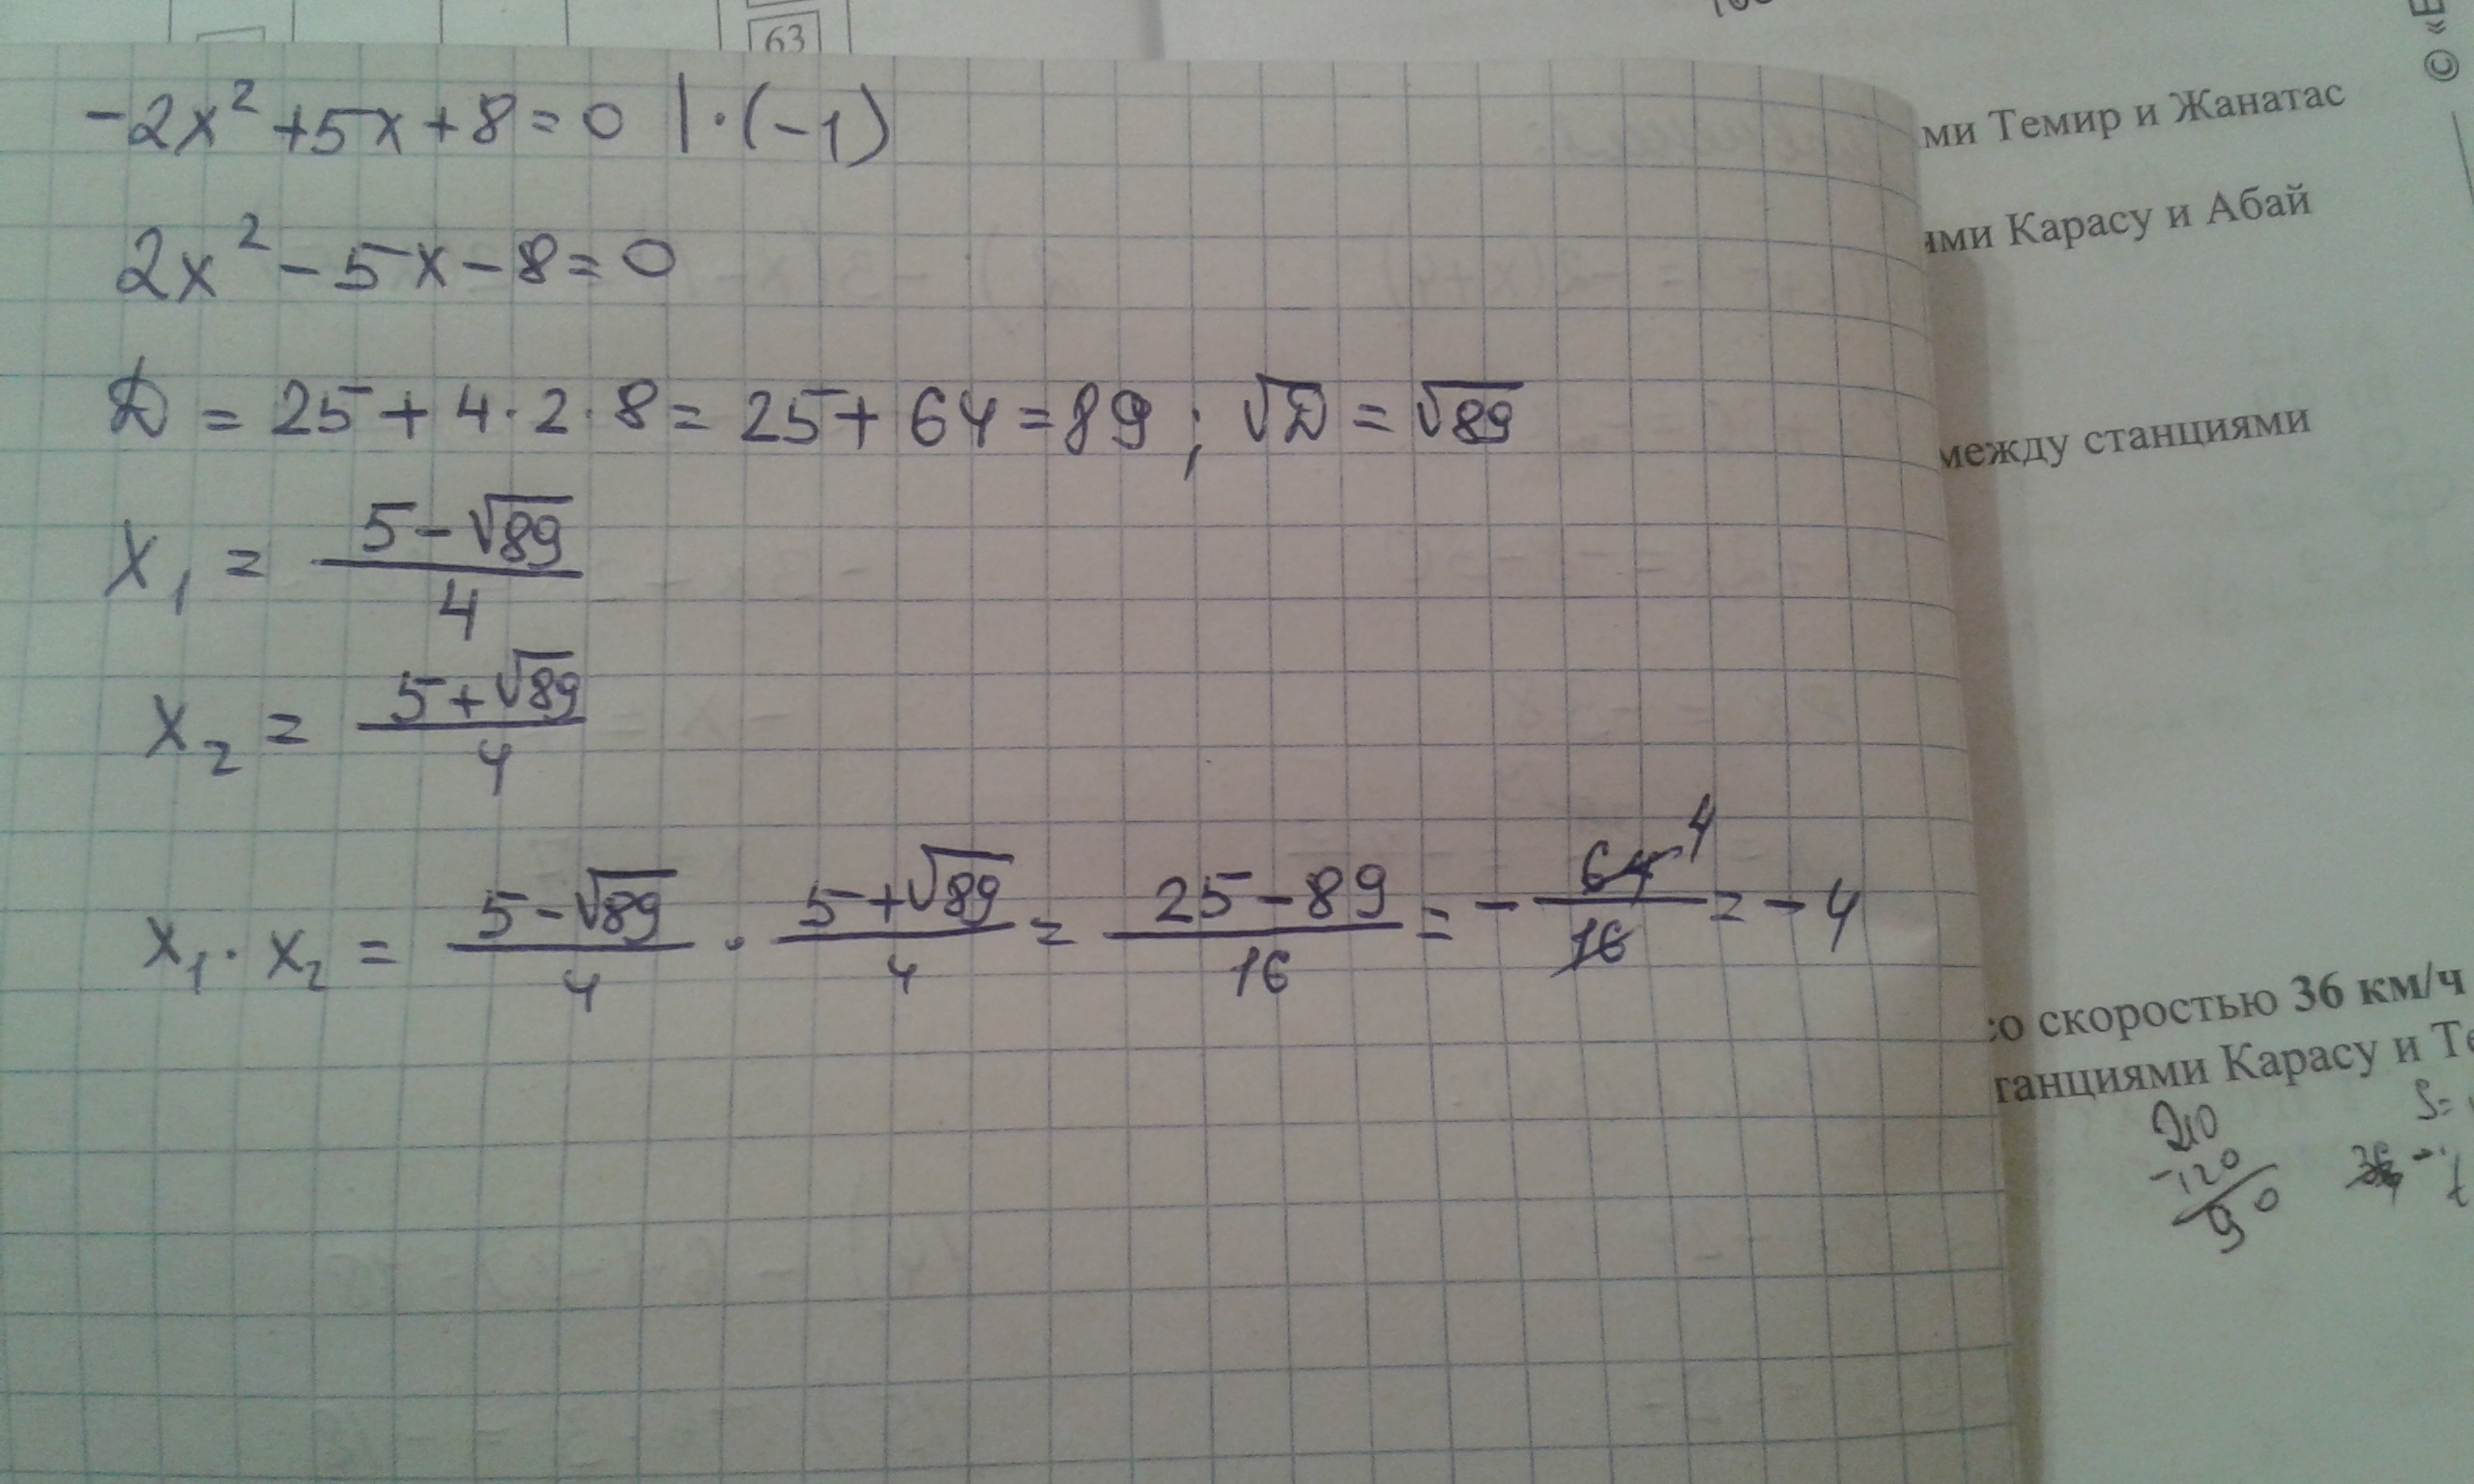 63
© «
-2x² + 5x + 8 = 0 | · (-1)
2x² - 5x - 8 = 0
D = 25 + 4 · 2 · 8 = 25 + 64 = 89 ; √D = √89
x₁ = (5 - √89)/4
x₂ = (5 + √89)/4
x₁ · x₂ = (5 - √89)/4 · (5 + √89)/4 = (25 - 89)/16 = - 64/16 4 = - 4
ми Темир и Жанатас
ми Карасу и Абай
между станциями
со скоростью 36 км/ч
танциями Карасу и Те
210
-120
90
S=
36
t